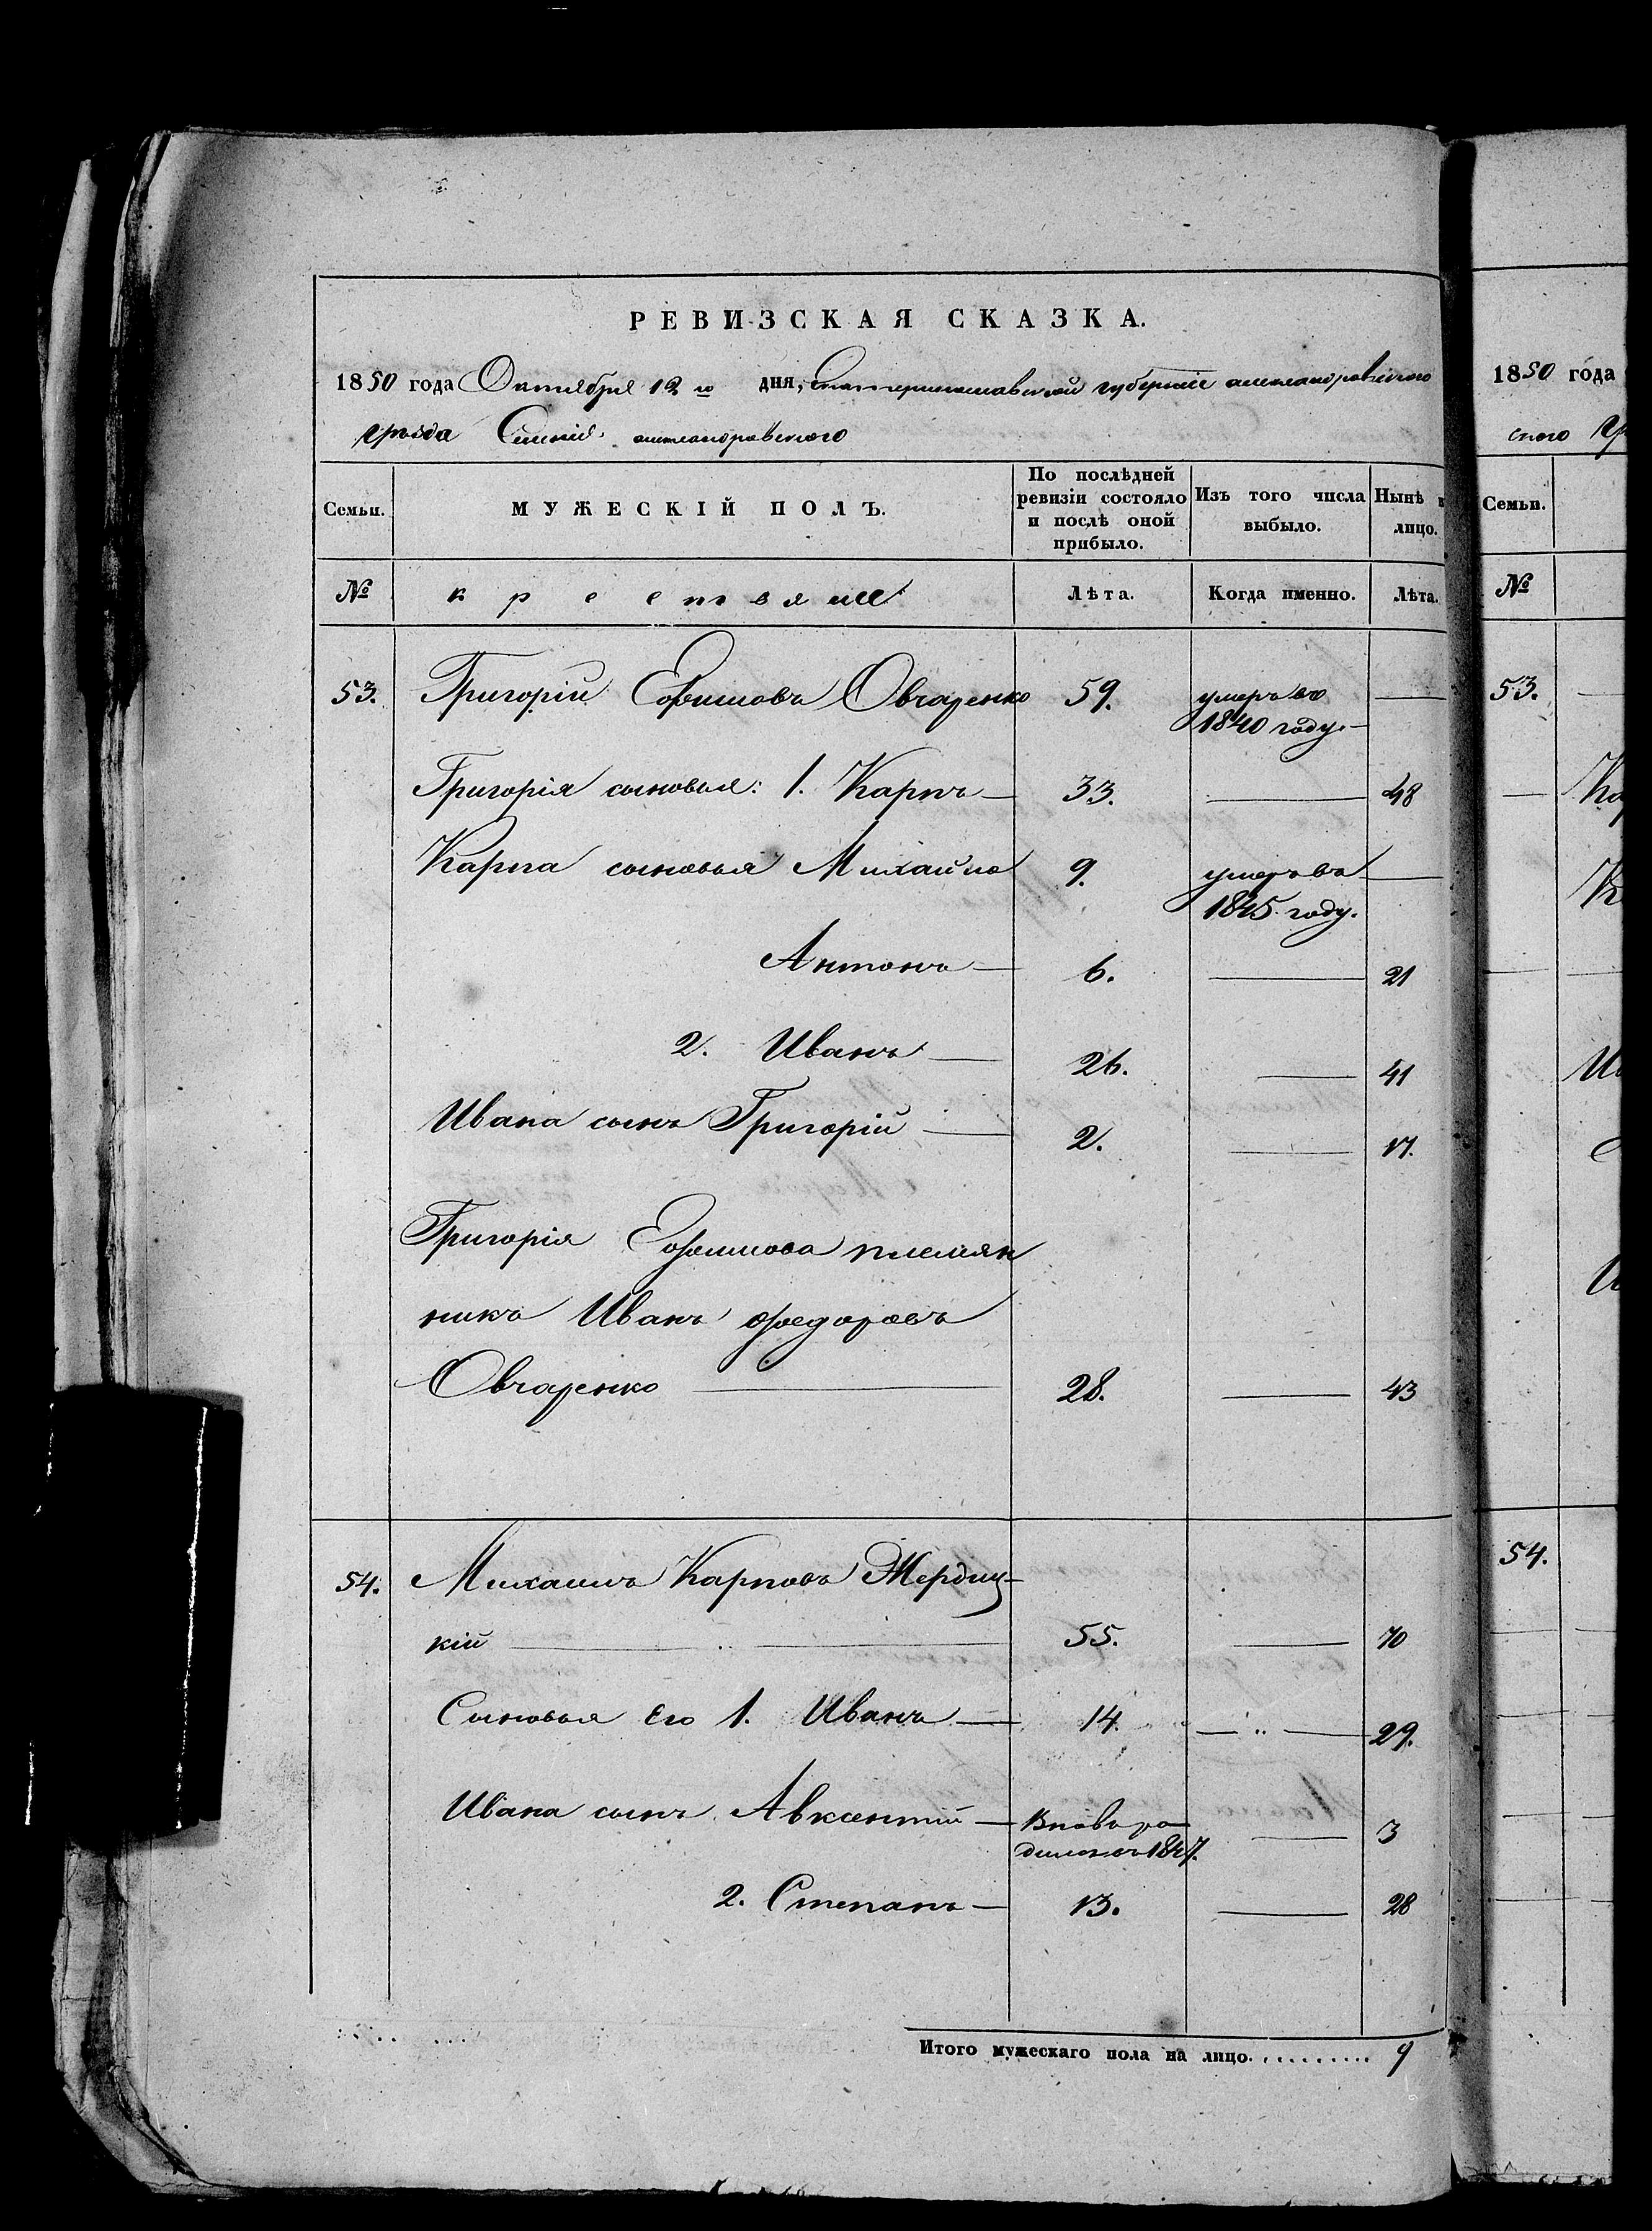 РЕВИЗСКАЯ СКАЗКА.
1850 года Октября 12 го дня, Екатеринославской губерніи александровского
уѣзда Селенія александровского
Семьи. МУЖЕСКІЙ ПОЛЪ. По послѣдней ревизіи состояло и послѣ оной прибыло. Изъ того числа выбыло. Нынѣ в лицо.
№ крестьяне Лѣта. Когда именно. Лѣта.
53. Григорій Ефимовъ Овчаренко 59. умеръ въ 1840 году. —
Григорія сыновья: 1. Карпъ — 33. — 48
Карпа сыновья Михайло 9. умеръ въ 1845 году. —
Антонъ — 6. — 21
2. Иванъ — 26. — 41
Ивана сынъ Григорій — 2. — 17.
Григорія Ефимова племян
никъ Иванъ федоровъ
Овчаренко — 28. — 43
54. Михаилъ Карповъ Жердиц-
кій — 55. — 70
Сыновья Его 1. Иванъ — 14. — 29.
Ивана сынъ Авксентій — Вновь ро
дился въ 1847. — 3
2. Степанъ — 13. — 28
Итого мужескаго пола на лицо.......... 9
1850 года
ского
Семьи.
№
53.
54.